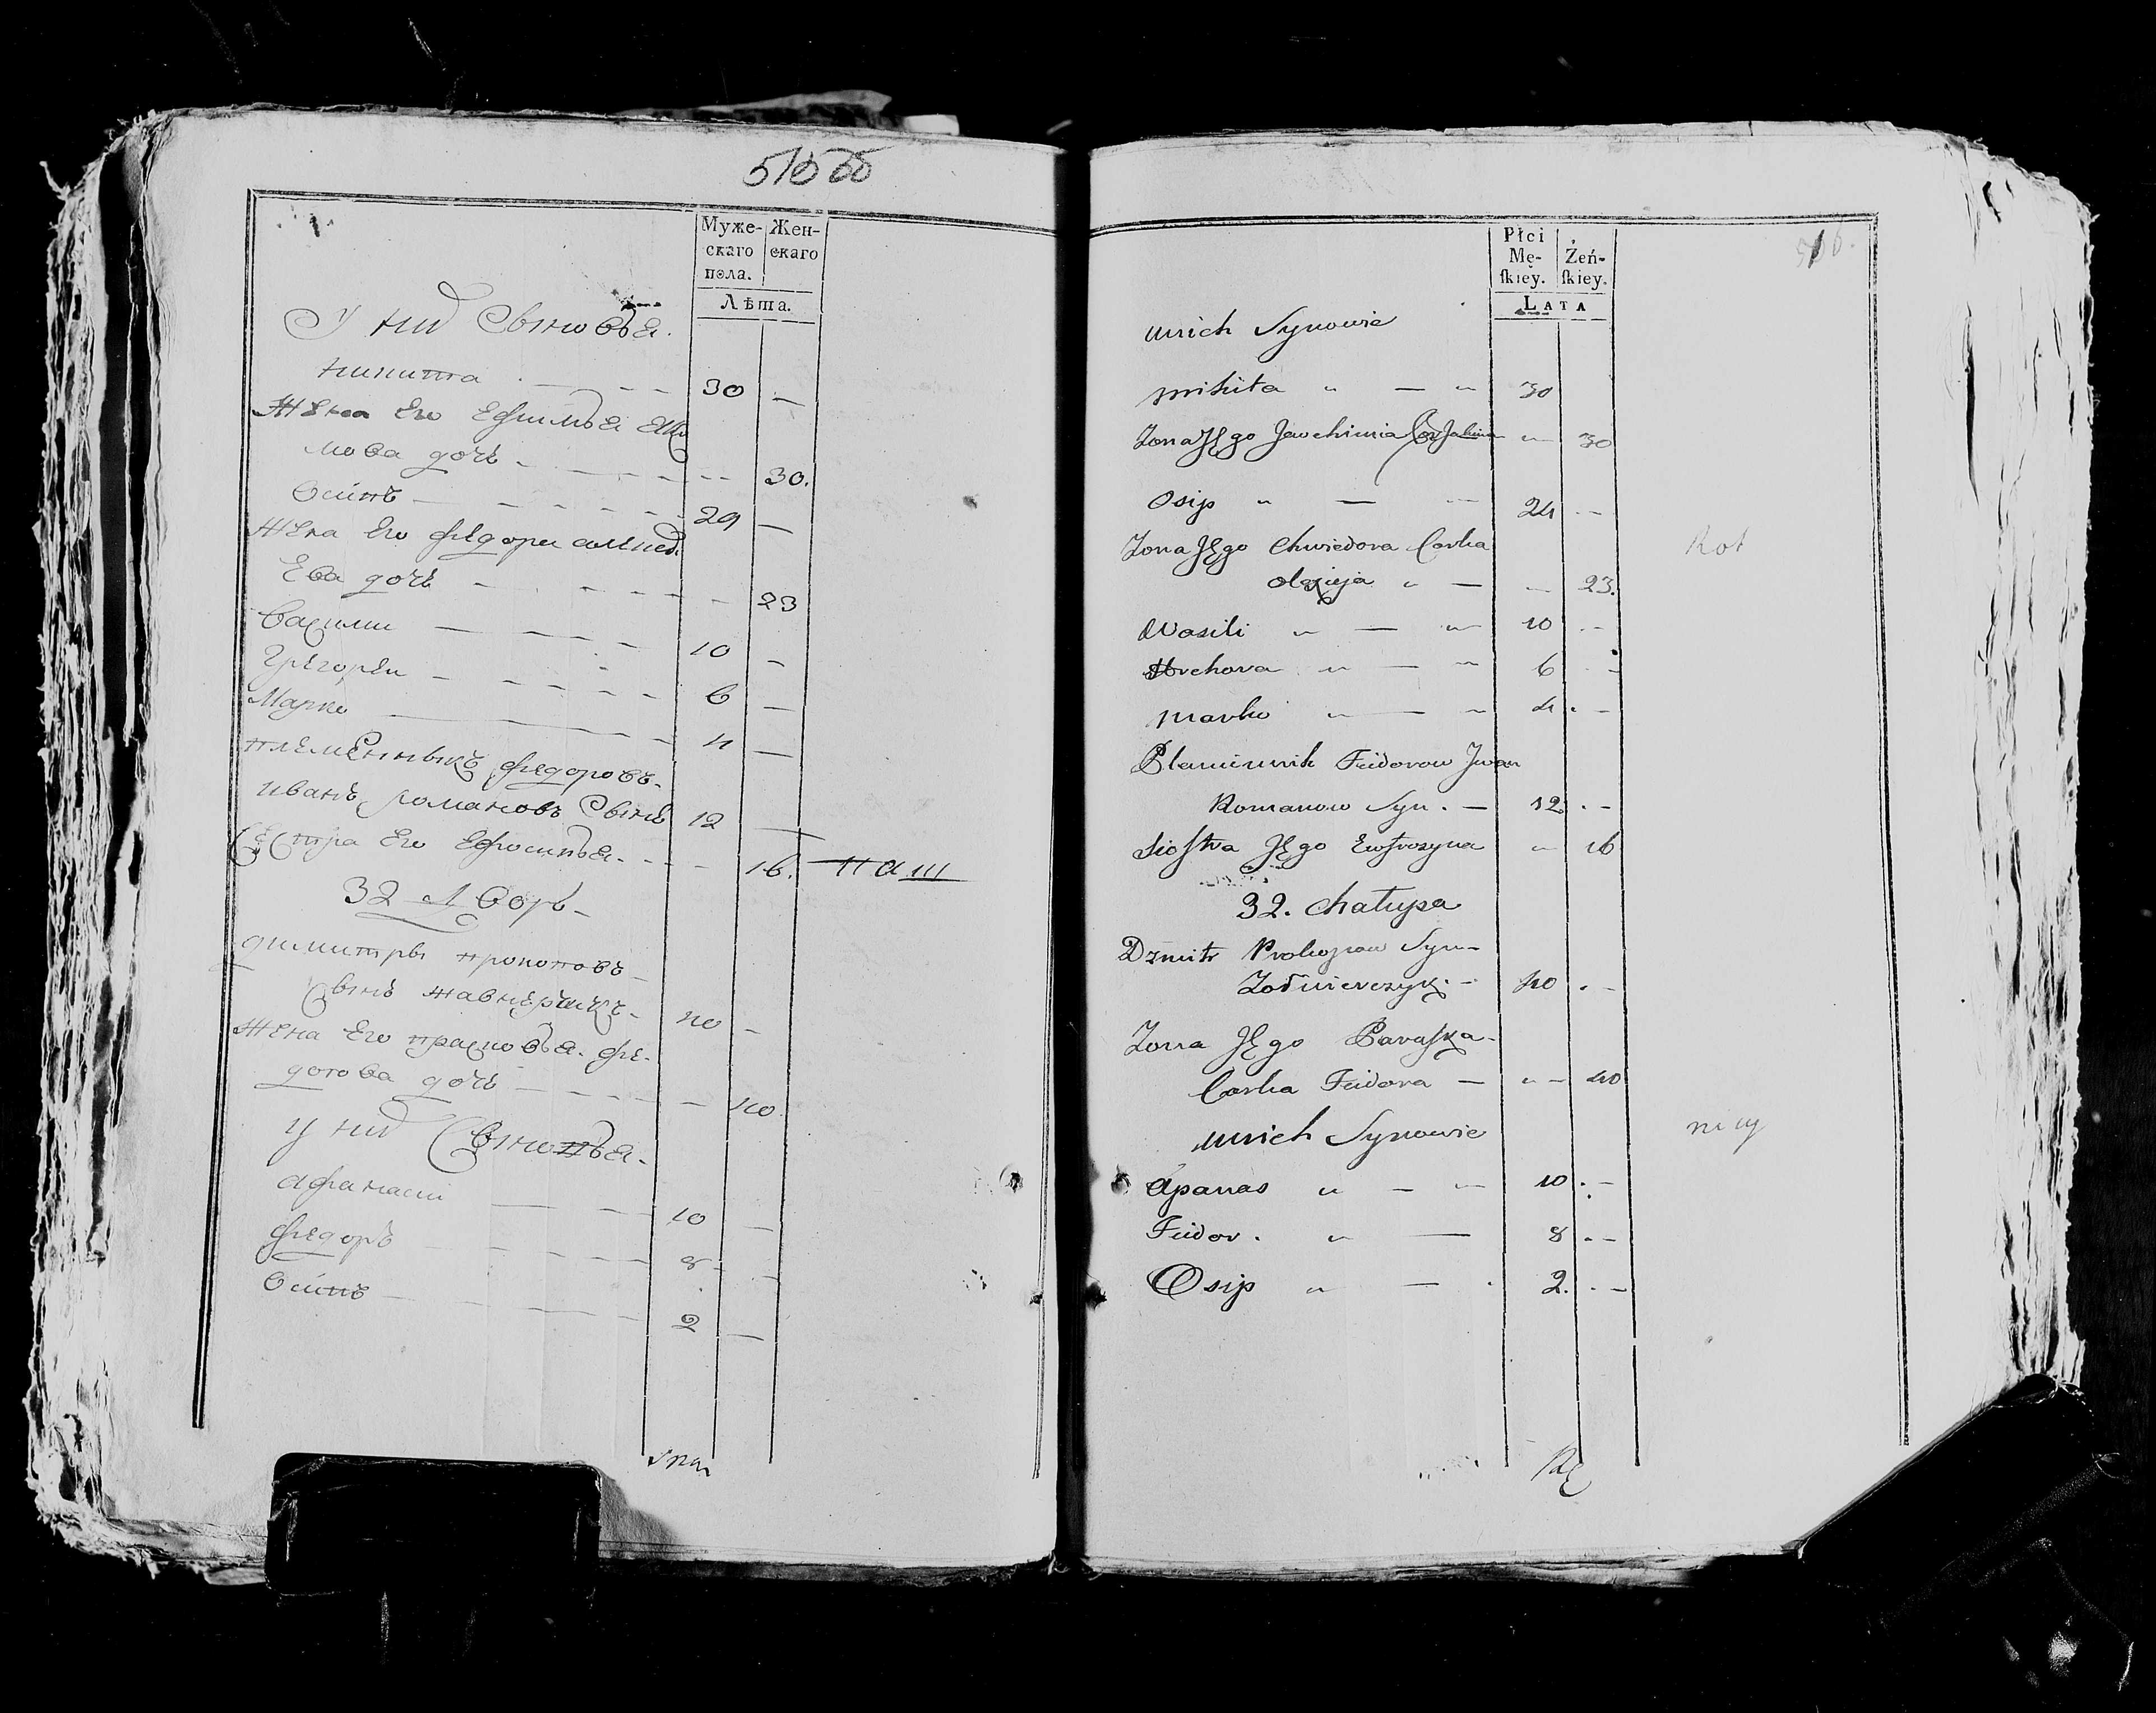 515об
Муже-
скаго
пола.
Жен-
скаго
Лѣта.
У ни<sup>х</sup> Сыновья.
никита 30 —
Жена Его Ефимья Яки
мова дочь 30.
Осипъ 29 —
Жена Его федора алексѣ
Ева дочь 23
Василии 10 —
Григореи 6 —
Марко 4 —
племенникъ федоровъ
иванъ романовъ Сынъ 12 —
Сестра Его Ефросинья 16.
32 Дворъ
димитры прокоповъ
Сынъ жавнерчикъ 40 —
Жена Его прасковья фе-
дотова дочь 40.
У них Сыновья.
афанаси 10 —
федоръ 8 —
Осипъ 2 —
Płci
Mę-
skiey.
Żeń-
skiey.
LATA
516.
unich Synowie
mikita 30
Zona Jęgo Jawchimia Cor Jakima 30
Osip 24
Zona Jęgo Chwiedora Corka
Olexieja 23.
Wasili 10
Hrehora 6
marko 4
Plamiennik Feidorow Jwan
Romanow Syn. 12
Siostra Jęgo Ewfrozyna 16
32. Chałupa
Dzmitr Prokopow Syn
Żołnierczyk 40
Zona Jęgo Paraska
Corka Feidora 40
unich Synowie
Apanas 10
Feidor. 8
Osip 2.